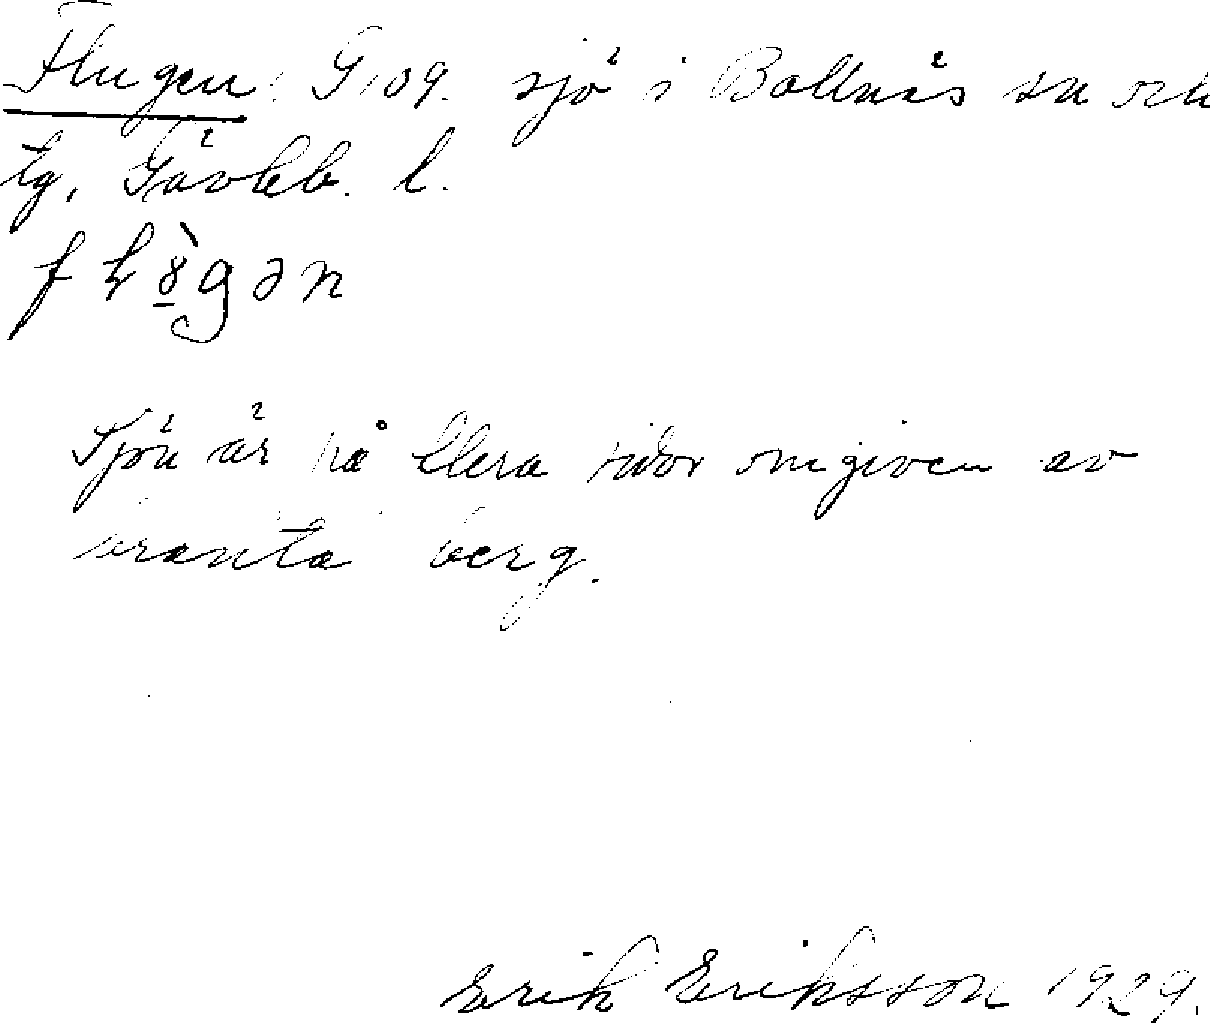 Flugen: G 109. sjö i Bollnäs sn och
tg, Gävleb. l.
Sjön är på flera sidor omgiven av
branta berg.
Erik Eriksson 1929.